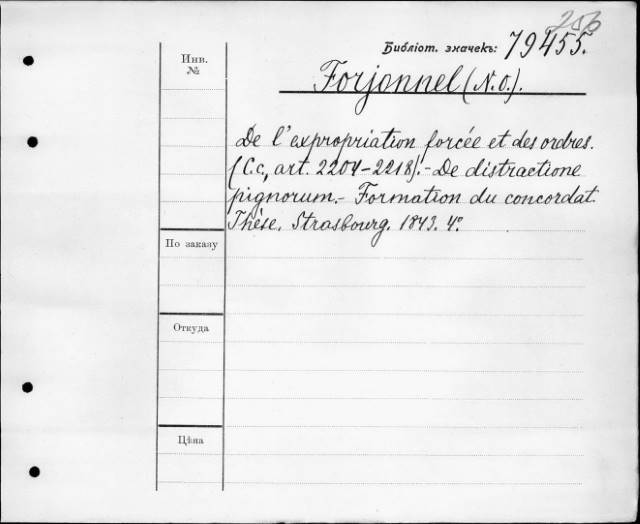 256
Библіот. значекъ: 79455.
Инв.
№
Forjonnel (N.O.).
De l'expropriation forcée et des ordres.
(C.c, art. 2204-2218).- De distractione
pignorum.- Formation du concordat.
Thèse. Strasbourg. 1843. 4º
По заказу
Откуда
Цѣна